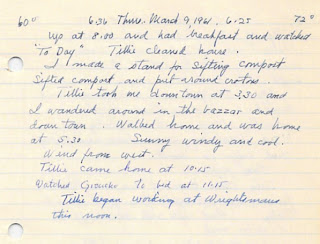 60° 6:36 Thur. March 9, 1961. 6:25 72°
Up at 8:00 and had breakfast and watched
"To Day" Tillie cleaned house.
I made a stand for sifting compost
Sifted compost and put around crotons.
Tillie took me downtown at 3:30 and
I wandered around in the bazzar and
down town. Walked home and was home
at 5:30 Sunny windy and cool.
Wind from west.
Tillie came home at 10:15
Watched Groucho to bed at 11:15
Tillie began working at
this noon.